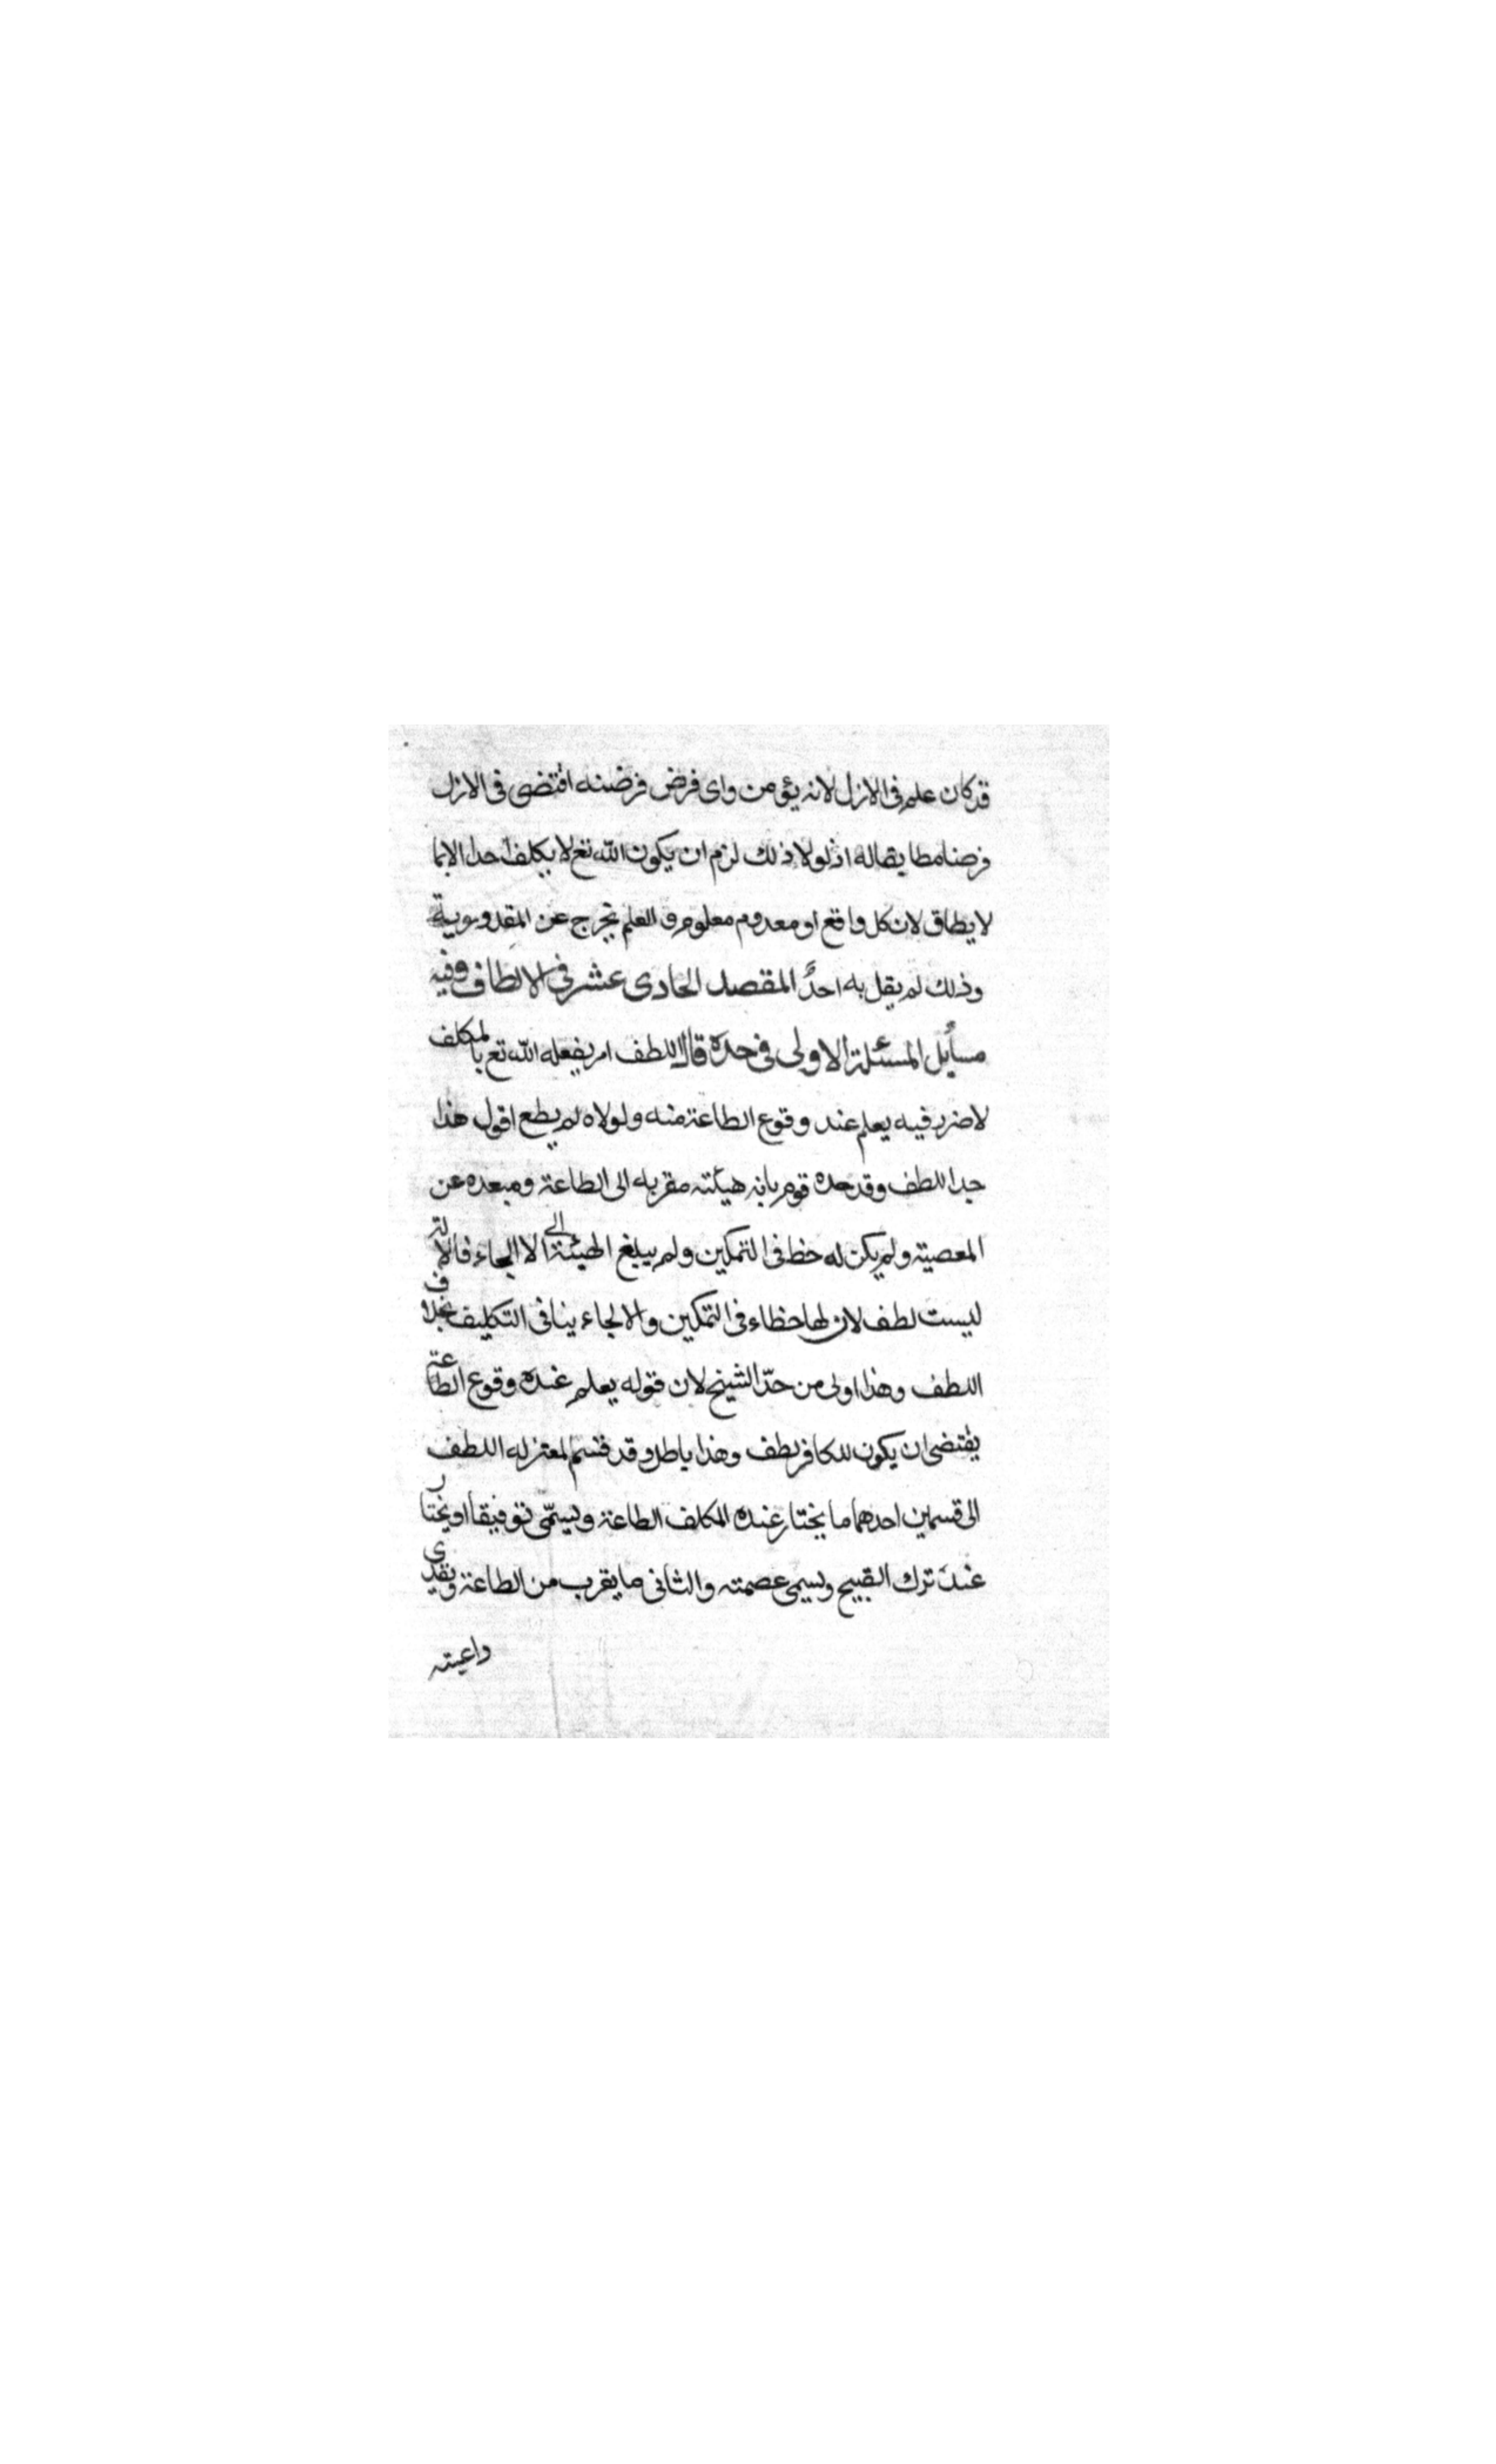 قد كان علم فى الازل لانه يؤمن واى فرض فرضنه اقتضى فى الازل
فرضنا مطابقاله اذ لولا ذلك لزم ان يكون الله تع لا يكلف احدا الا بما
لا يطاق لان كل واقع او معدوم معلوم و العلم يخرج عن المقدورية
وذلك لم يقل به احدٌ المقصد الحادى عشر فى الالطاف وفيه
مسايل المسئلة الاولى فى حده قال اللطف امر يفعله الله تع بالمكلف
لا ضرر فيه يعلم عند وقوع الطاعة منه ولولاه لم يطع اقول هذا
حد اللطف وقد حده قوم بانه هيئته مقربه الى الطاعة ومبعده عن
المعصية ولم يكن له حظ فى التمكين ولم يبلغ الهيئة الى الا الجاء فالالة
ليست لطف لان لها حظاء فى التمكين والالجاء ينافى التكليف بخلاف
اللطف وهذا اولى من حدّ الشيخ لان قوله يعلم عنده وقوع الطاعة
يقتضى ان يكون للكافر لطف وهذا باطل وقد قسم المعتزله اللطف
الى قسمين احدهما ما يختار عنده المكلف الطاعة ويسمّى توفيقا او يختار
عنده ترك القبيح ويسمى عصمته والثانى ما يقرب من الطاعة ويقدى
داعيته